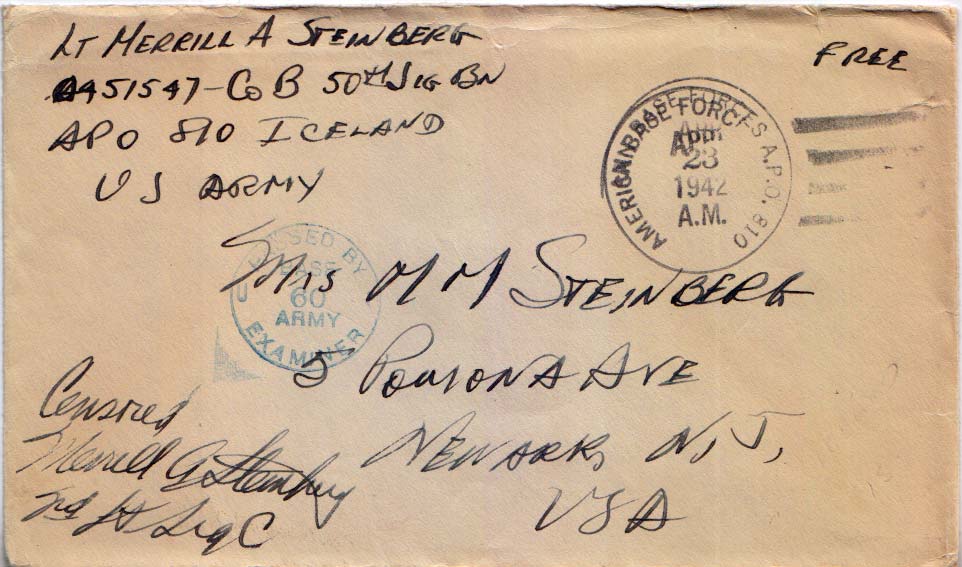 LT MERRILL A STEINBERG
0451547-Co B 50th SIG BN
APO 810 ICELAND
US ARMY
FREE
AMERICAN BASE FORCES A.P.O. 810
APR
23
1942
A.M.
PASSED BY
BASE
60
ARMY
EXAMINER
Mrs M M STEINBERG
5 POMONA AVE
NEWARK, N.J.,
USA
Censored
Merrill A Steinberg
2nd Lt Sig C